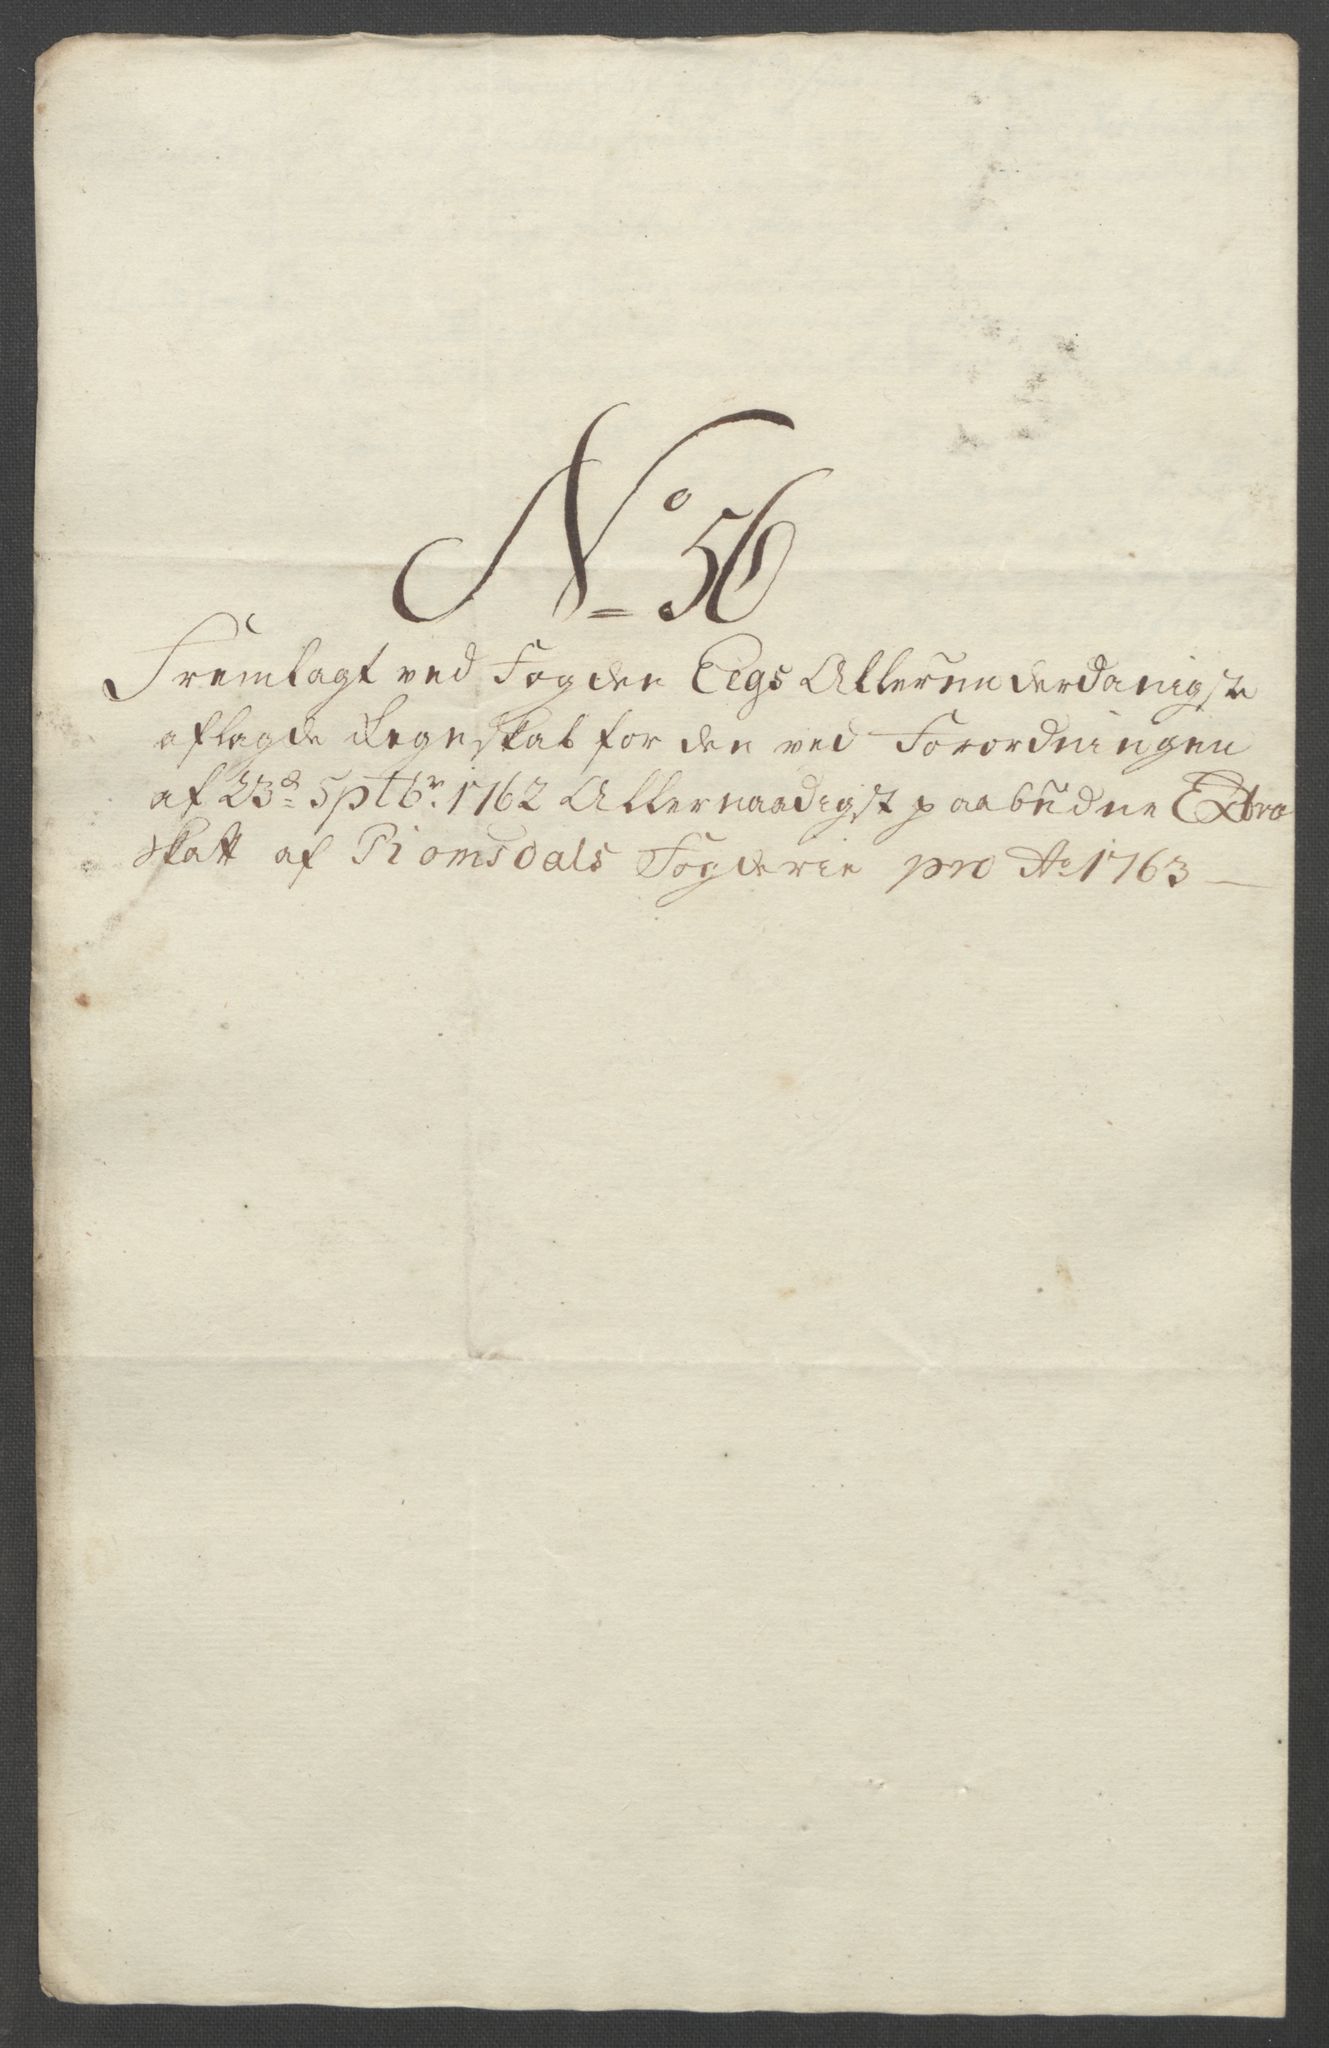 No 56
Fremlagt ved Fogden Eegs Allerunderdanigste
aflagde Regnskab for den ved Forordningen
af 23de Sptbr. 1762 Allernaadigst paabudne Extra
skatt af Romsdals Fogderie pro Ao 1763